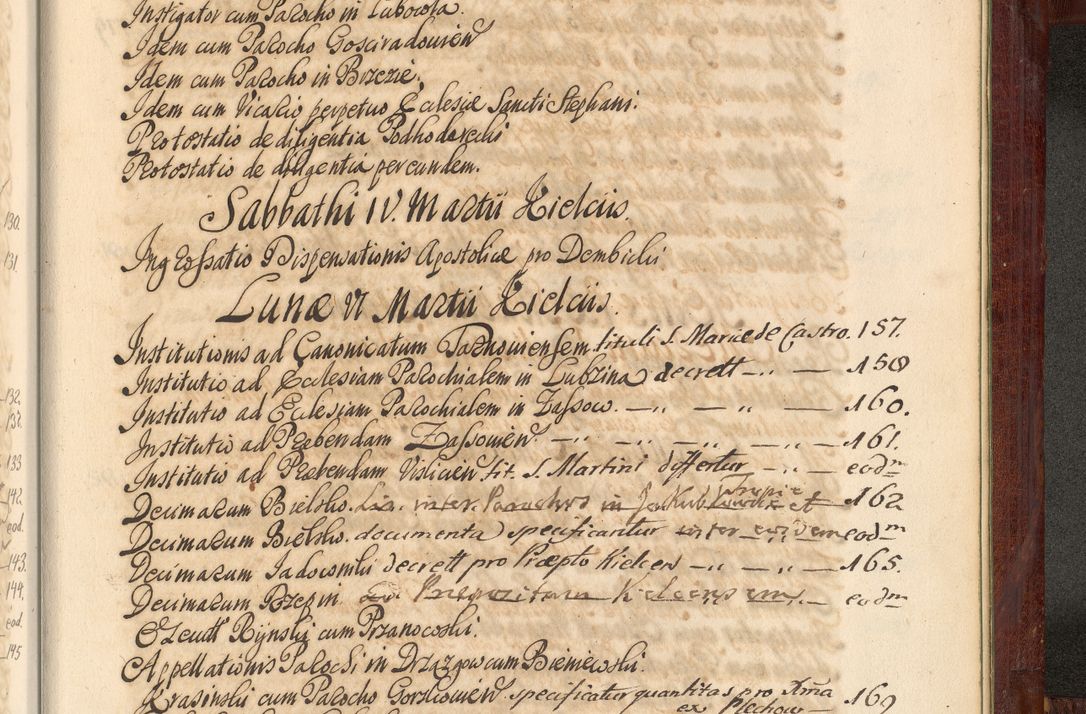 Instigator cum Parocho in Lubocola
Idem cum Parocho Gosciradovien
Idem cum Parocho in Brzezie.
Idem cum Vicario perpetuo Ecclesiæ Sancti Stephani.
Protostatio de diligentia Podhodorecki
Protostatio de diligentia per eundem.
Sabbathi IV. Martii Kielciis.
Ingrossatio Dispensationis Apostolicæ pro Dembicki
Lunæ VI Martii Kielciis.
Institutionis ad Canonicatum Tarnoviensem tituli S. Mariæ de Castro. 157.
Institutio ad Ecclesiam Parochialem in Lubzina decrett — 158
Institutio ad Ecclesiam Parochialem in Zassow. — 160.
Institutio ad Præbendam Zassovien — 161.
Institutio ad Præbendam Vislicien tit. S. Martini differtur — eodm
Decimarum Bielsko. Lis. inter Parochos in et 162
Decimarum Bielsko. documenta specificantur inter eosdem eodm
Decimarum Jadowniki decrett pro Præpto Kielcen — 165.
Decimarum Præpositum Kielcensem. — eodm
Rijnski cum Przanocoski.
Appellationis Parochi in Drzazgow cum Bieniewski.
Krasinski cum Parocho specificatur quantitas pro Ama 169
ex Plechow
130.
131.
132.
133
142
eod.
143.
144.
eod.
145